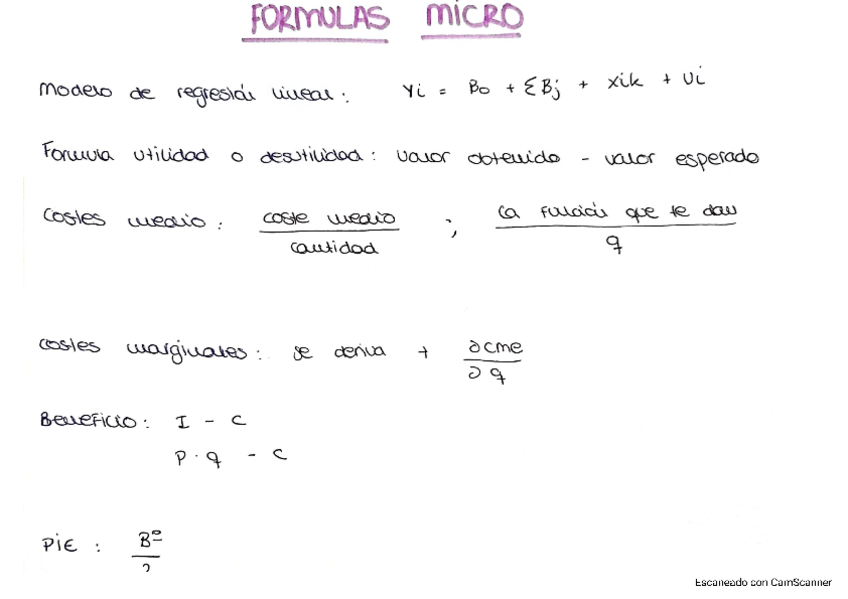 FORMULAS MICRO
Modelo de regresión lineal: Yi = Bo + ΣBj + Xik + Ui
Formula utilidad o desutilidad: valor obtenido - valor esperado
Costes medio: coste medio / cantidad ; la función que te dan / q
costes marginales: se deriva + ∂cme / ∂q
Beneficio: I - C
P · q - C
PiE: Bº / 2
Escaneado con CamScanner